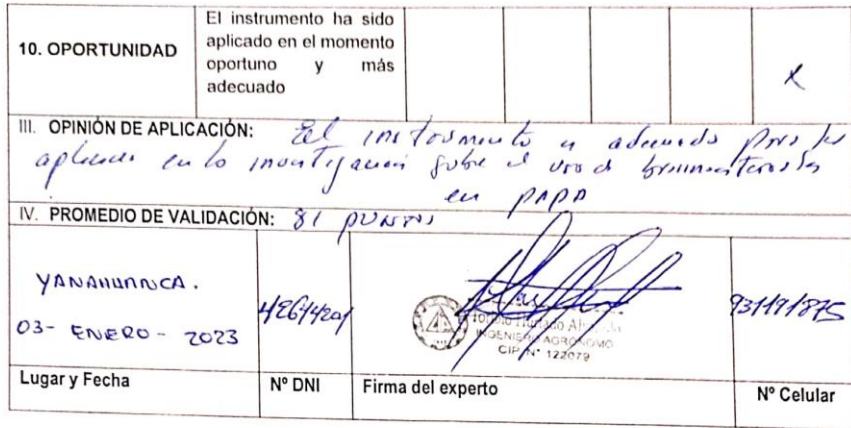 10. OPORTUNIDAD
El instrumento ha sido
aplicado en el momento
oportuno y más
adecuado
X
III. OPINIÓN DE APLICACIÓN: El instrumento es adecuado para
en la investigación sobre el uso de
en PAPA
IV. PROMEDIO DE VALIDACIÓN: 81 PUNTOS
YANAHUANCA.
03- ENERO - 2023
INGENIERO AGRÓNOMO
CIP. N° 122079
Lugar y Fecha
Nº DNI
Firma del experto
Nº Celular